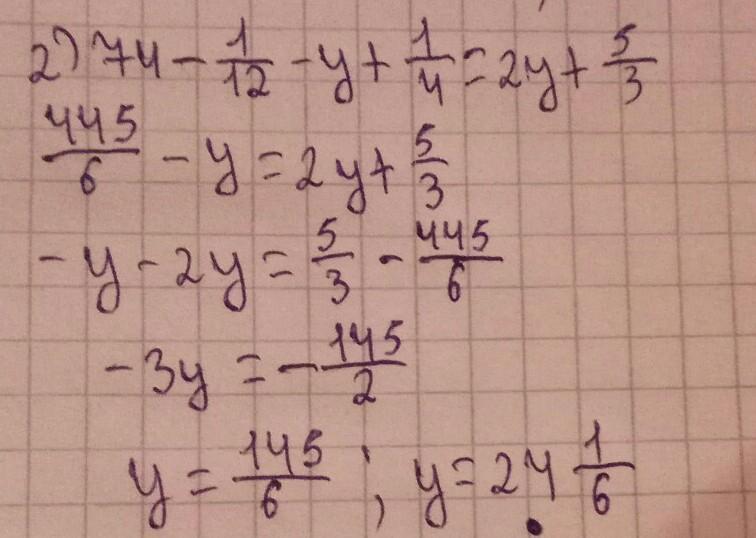 2) 74 - 1/12 - y + 1/4 = 2y + 5/3
445/6 - y = 2y + 5/3
- y - 2y = 5/3 - 445/6
- 3y = - 145/2
y = 145/6 ; y = 24 1/6